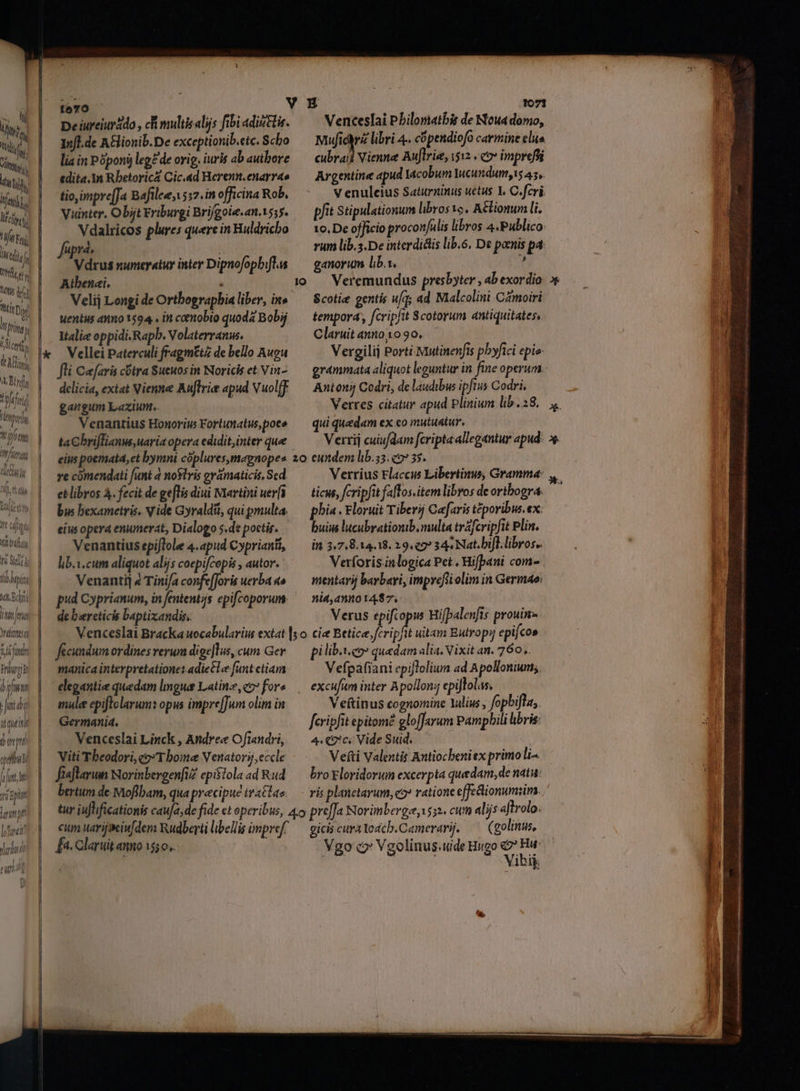 1070 V E 1071
De iureiurãdo, cũ multis alijs sibi adiectis.
Inst. de Actionib. De exceptionib. etc. Scho
lia in Põponij legẽ de orig. iuris ab authore
edita. In Rhetoricã Cic. ad Herenn. enarra-
tio, impressa Basileæ, 1537. in officina Rob.
Vuinter. Obijt Friburgi Brisgoiæ. an. 1535.
Vdalricos plures quære in Huldricho
supra.
Vdrus numeratur inter Dipnosophistas
Athenæi.
Velij Longi de Orthographia liber, in-
uentus anno 1594. in cœnobio quodã Bobij
Italiæ oppidi. Raph. Volaterranus.
* Vellei Paterculi fragmẽtũ de bello Augu
sti Cæsaris cõtra Sueuos in Noricis et Vin-
delicia, extat Viennæ Austriæ apud Vuolff
gangum Lazium.
Venantius Honorius Fortunatus, poe-
ta Christianus, uaria opera edidit, inter quæ
eius poemata, et hymni cõplures, magnope-
re cõmendati sunt à nostris grãmaticis. Sed
et libros 4. fecit de gestis diui Martini uersi
bus hexametris. Vide Gyraldũ, qui pmulta
eius opera enumerat, Dialogo 5. de poetis.
Venantius epistolæ 4. apud Cyprianũ,
lib. 1. cum aliquot alijs coepiscopis, autor.
Venantij à Tinisa confessoris uerba a-
pud Cyprianum, in sententijs episcoporum
de hæreticis baptizandis.
Venceslai Bracka uocabularius extat
secundum ordines rerum digestus, cum Ger
manica interpretatione: adiectæ sunt etiam
elegantiæ quædam linguæ Latinæ, & for-
mulæ epistolarum: opus impressum olim in
Germania.
Venceslai Linck, Andreæ Osiandri,
Viti Theodori, & Thomæ Venatorij, eccle
siastarum Norinbergensiũ epistola ad Rud
bertum de Mosham, qua præcipue tracta-
tur iustificationis causa, de fide et operibus,
cum uarijs eiusdem Rudberti libellis impres
sa. Claruit anno 1530.
Venceslai Philomathis de Noua domo,
Musicorũ libri 4. cõpendioso carmine elu-
cubrati Viennæ Austriæ, 1512. & impressi
Argentinæ apud Iacobum Iucundum, 1543.
Venuleius Saturninus uetus I. C. scri
psit Stipulationum libros 10. Actionum li.
10. De officio proconsulis libros 4. Publico
rum lib. 3. De interdictis lib. 6. De pœnis pa
ganorum lib. 1.
10 Veremundus presbyter, ab exordio *
Scotiæ gentis usq; ad Malcolini Cãmoiri
tempora, scripsit Scotorum antiquitates.
Claruit anno 1090.
Vergilij Porti Mutinensis physici epi-
grammata aliquot leguntur in fine operum
Antonij Codri, de laudibus ipsius Codri.
Verres citatur apud Plinium lib. 28. *
qui quædam ex eo mutuatur.
Verrij cuiusdam scripta allegantur apud *
20 eundem lib. 33. & 35.
Verrius Flaccus Libertinus, Gramma- *
ticus, scripsit fastos. item libros de orthogra
phia. Floruit Tiberij Cæsaris tẽporibus. ex
huius lucubrationib. multa trãscripsit Plin.
in 3. 7. 8. 14. 18. 29. & 34. Nat. hist. libros.
Versoris in logica Pet. Hispani com-
mentarij barbari, impressi olim in Germa-
nia, anno 1487.
Verus episcopus Hispalensis prouin-
30 ciæ Beticæ, scripsit uitam Eutropij episco-
pi lib. 1. & quædam alia. Vixit an. 760.
Vespasiani epistolium ad Apollonium,
excusum inter Apollonij epistolas.
Vestinus cognomine Iulius, sophista,
scripsit epitomẽ glossarum Pamphili libris
4. &c. Vide Suid.
Vesti Valentis Antiocheni ex primo li-
bro Floridorum excerpta quædam, de natu
ris planetarum, & ratione effectionum: im-
40 pressa Norimbergæ, 1532. cum alijs astrolo-
gicis cura Ioach. Camerarij. (golinus.
Vgo & Vgolinus. uide Hugo & Hu
Vibij